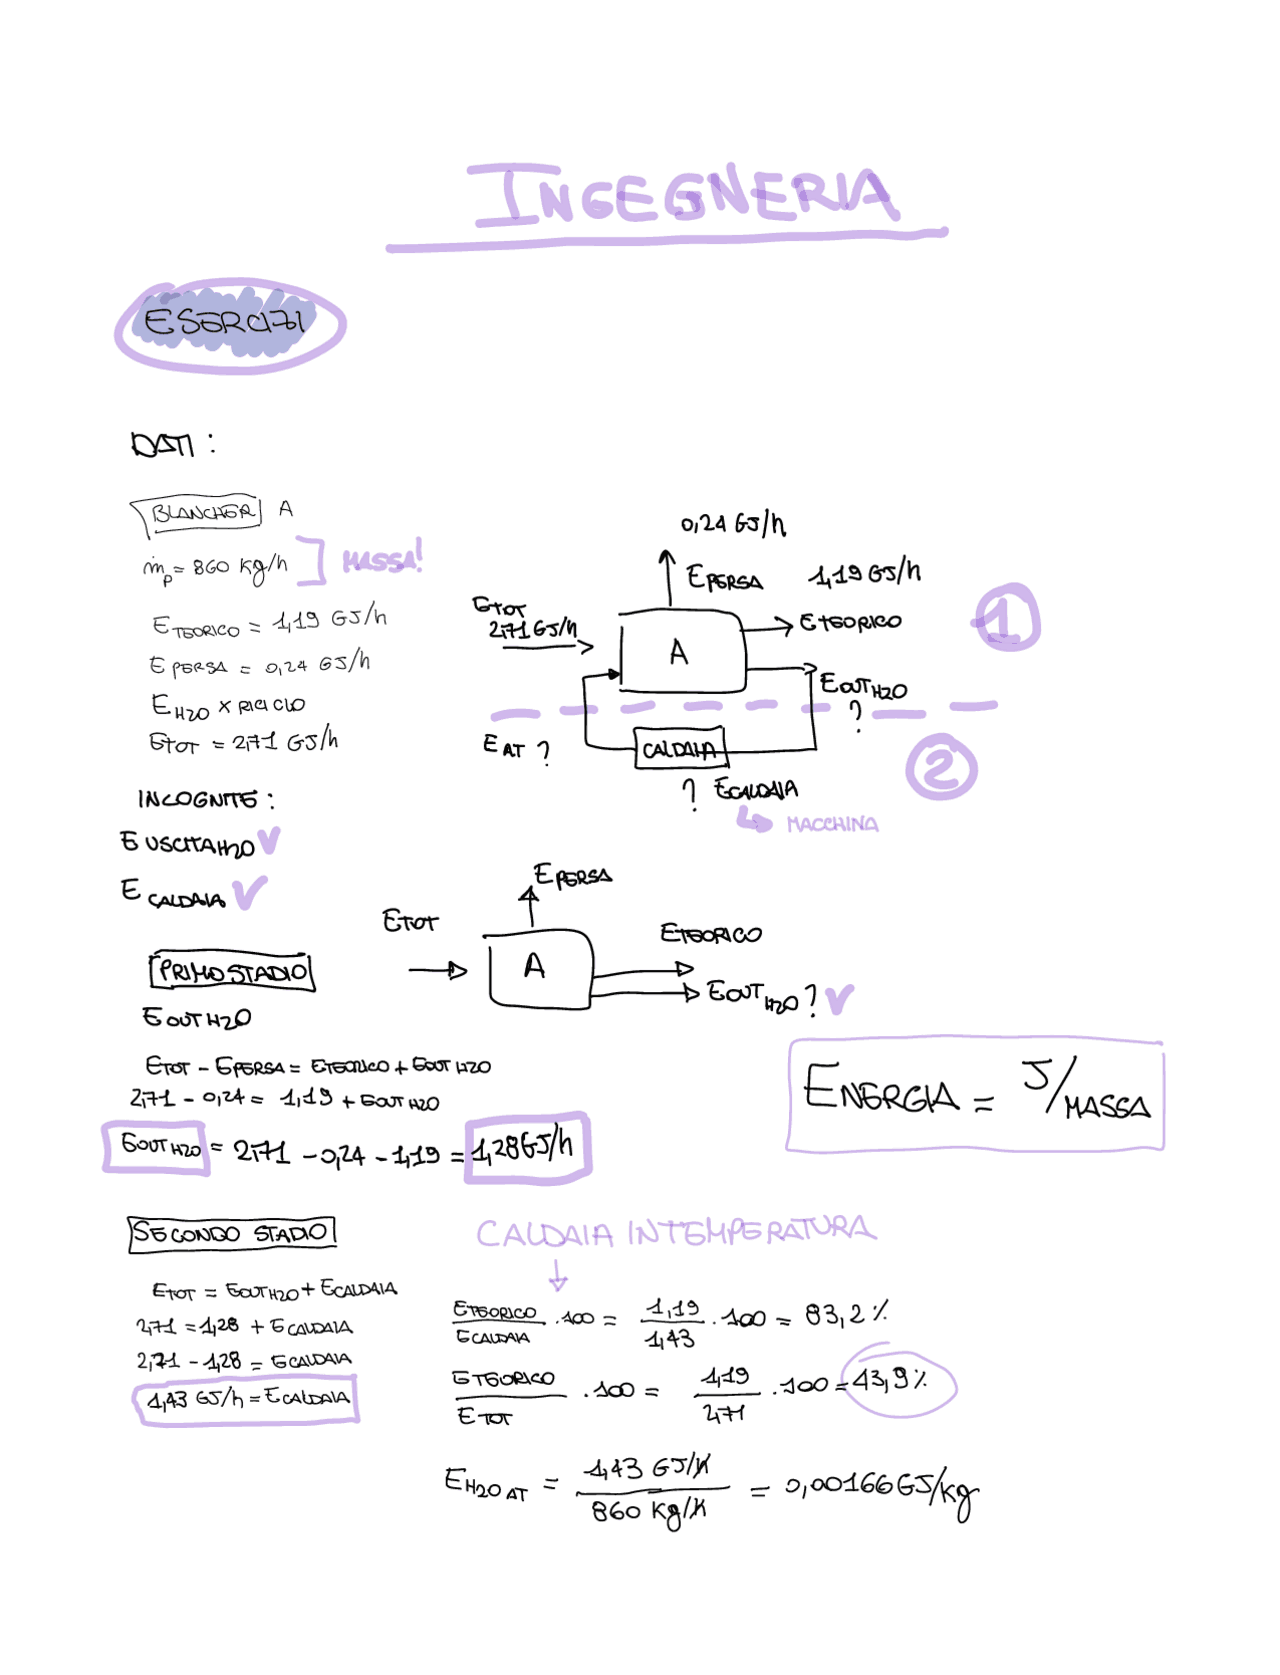 INGEGNERIA
ESERCIZI
DATI :
BLANCHER A
ṁp = 860 kg/h ] MASSA!
E TEORICO = 1,19 GJ/h
E PERSA = 0,24 GJ/h
E H2O x RICICLO
E TOT = 2,71 GJ/h
INCOGNITE :
E USCITA H2O ✓
E CALDAIA ✓
0,24 GJ/h
E PERSA 1,19 GJ/h
E TOT
2,71 GJ/h
A
E TEORICO
1
E OUT H2O
?
E AT ?
CALDAIA
2
? E CALDAIA
↳ MACCHINA
E PERSA
E TOT
A
E TEORICO
E OUT H2O ? ✓
PRIMO STADIO
E OUT H2O
E TOT - E PERSA = E TEORICO + E OUT H2O
2,71 - 0,24 = 1,19 + E OUT H2O
E OUT H2O = 2,71 - 0,24 - 1,19 = 1,28 GJ/h
ENERGIA = J/MASSA
SECONDO STADIO
E TOT = E OUT H2O + E CALDAIA
2,71 = 1,28 + E CALDAIA
2,71 - 1,28 = E CALDAIA
1,43 GJ/h = E CALDAIA
CALDAIA IN TEMPERATURA
↓
E TEORICO / E CALDAIA · 100 = 1,19 / 1,43 · 100 = 83,2 %
E TEORICO / E TOT · 100 = 1,19 / 2,71 · 100 = 43,9 %
E H2O AT = 1,43 GJ/h / 860 kg/h = 0,00166 GJ/kg